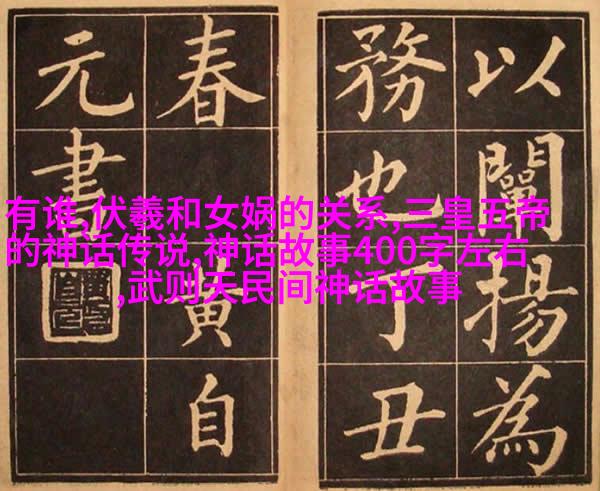 以闡揚為
務也丁丑
春 黃自
元書
有谁,伏羲和女娲的关系,三皇五帝
的神话传说,神话故事400字左右
,武则天民间神话故事